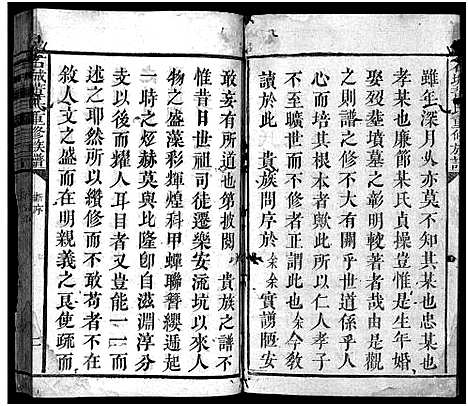 雖年深月久亦莫不知其某也忠某也
孝某也廉節某氏貞操豈惟是生年婚
娶歿葬墳墓之彰明較著也哉由是觀
之則譜之修不大有關乎世道係乎人
心而為根本其與者歟以仁人孝子
貴族問序於余余實謭陋安
敢妄有所道也第披閱貴族之譜不
惟昔日世祖司徒遷樂安流坑以來人
物之盛藻彩輝煌科甲蟬聯簪纓遞起
一時之烜赫莫與比隆卽自滋淵淳分
支以後而耀人耳目者又豈能一一而
述之而乃所以纘修而不敢苟者不在
敘人文之盛而在明親義之良使疏而
重修族譜
新序